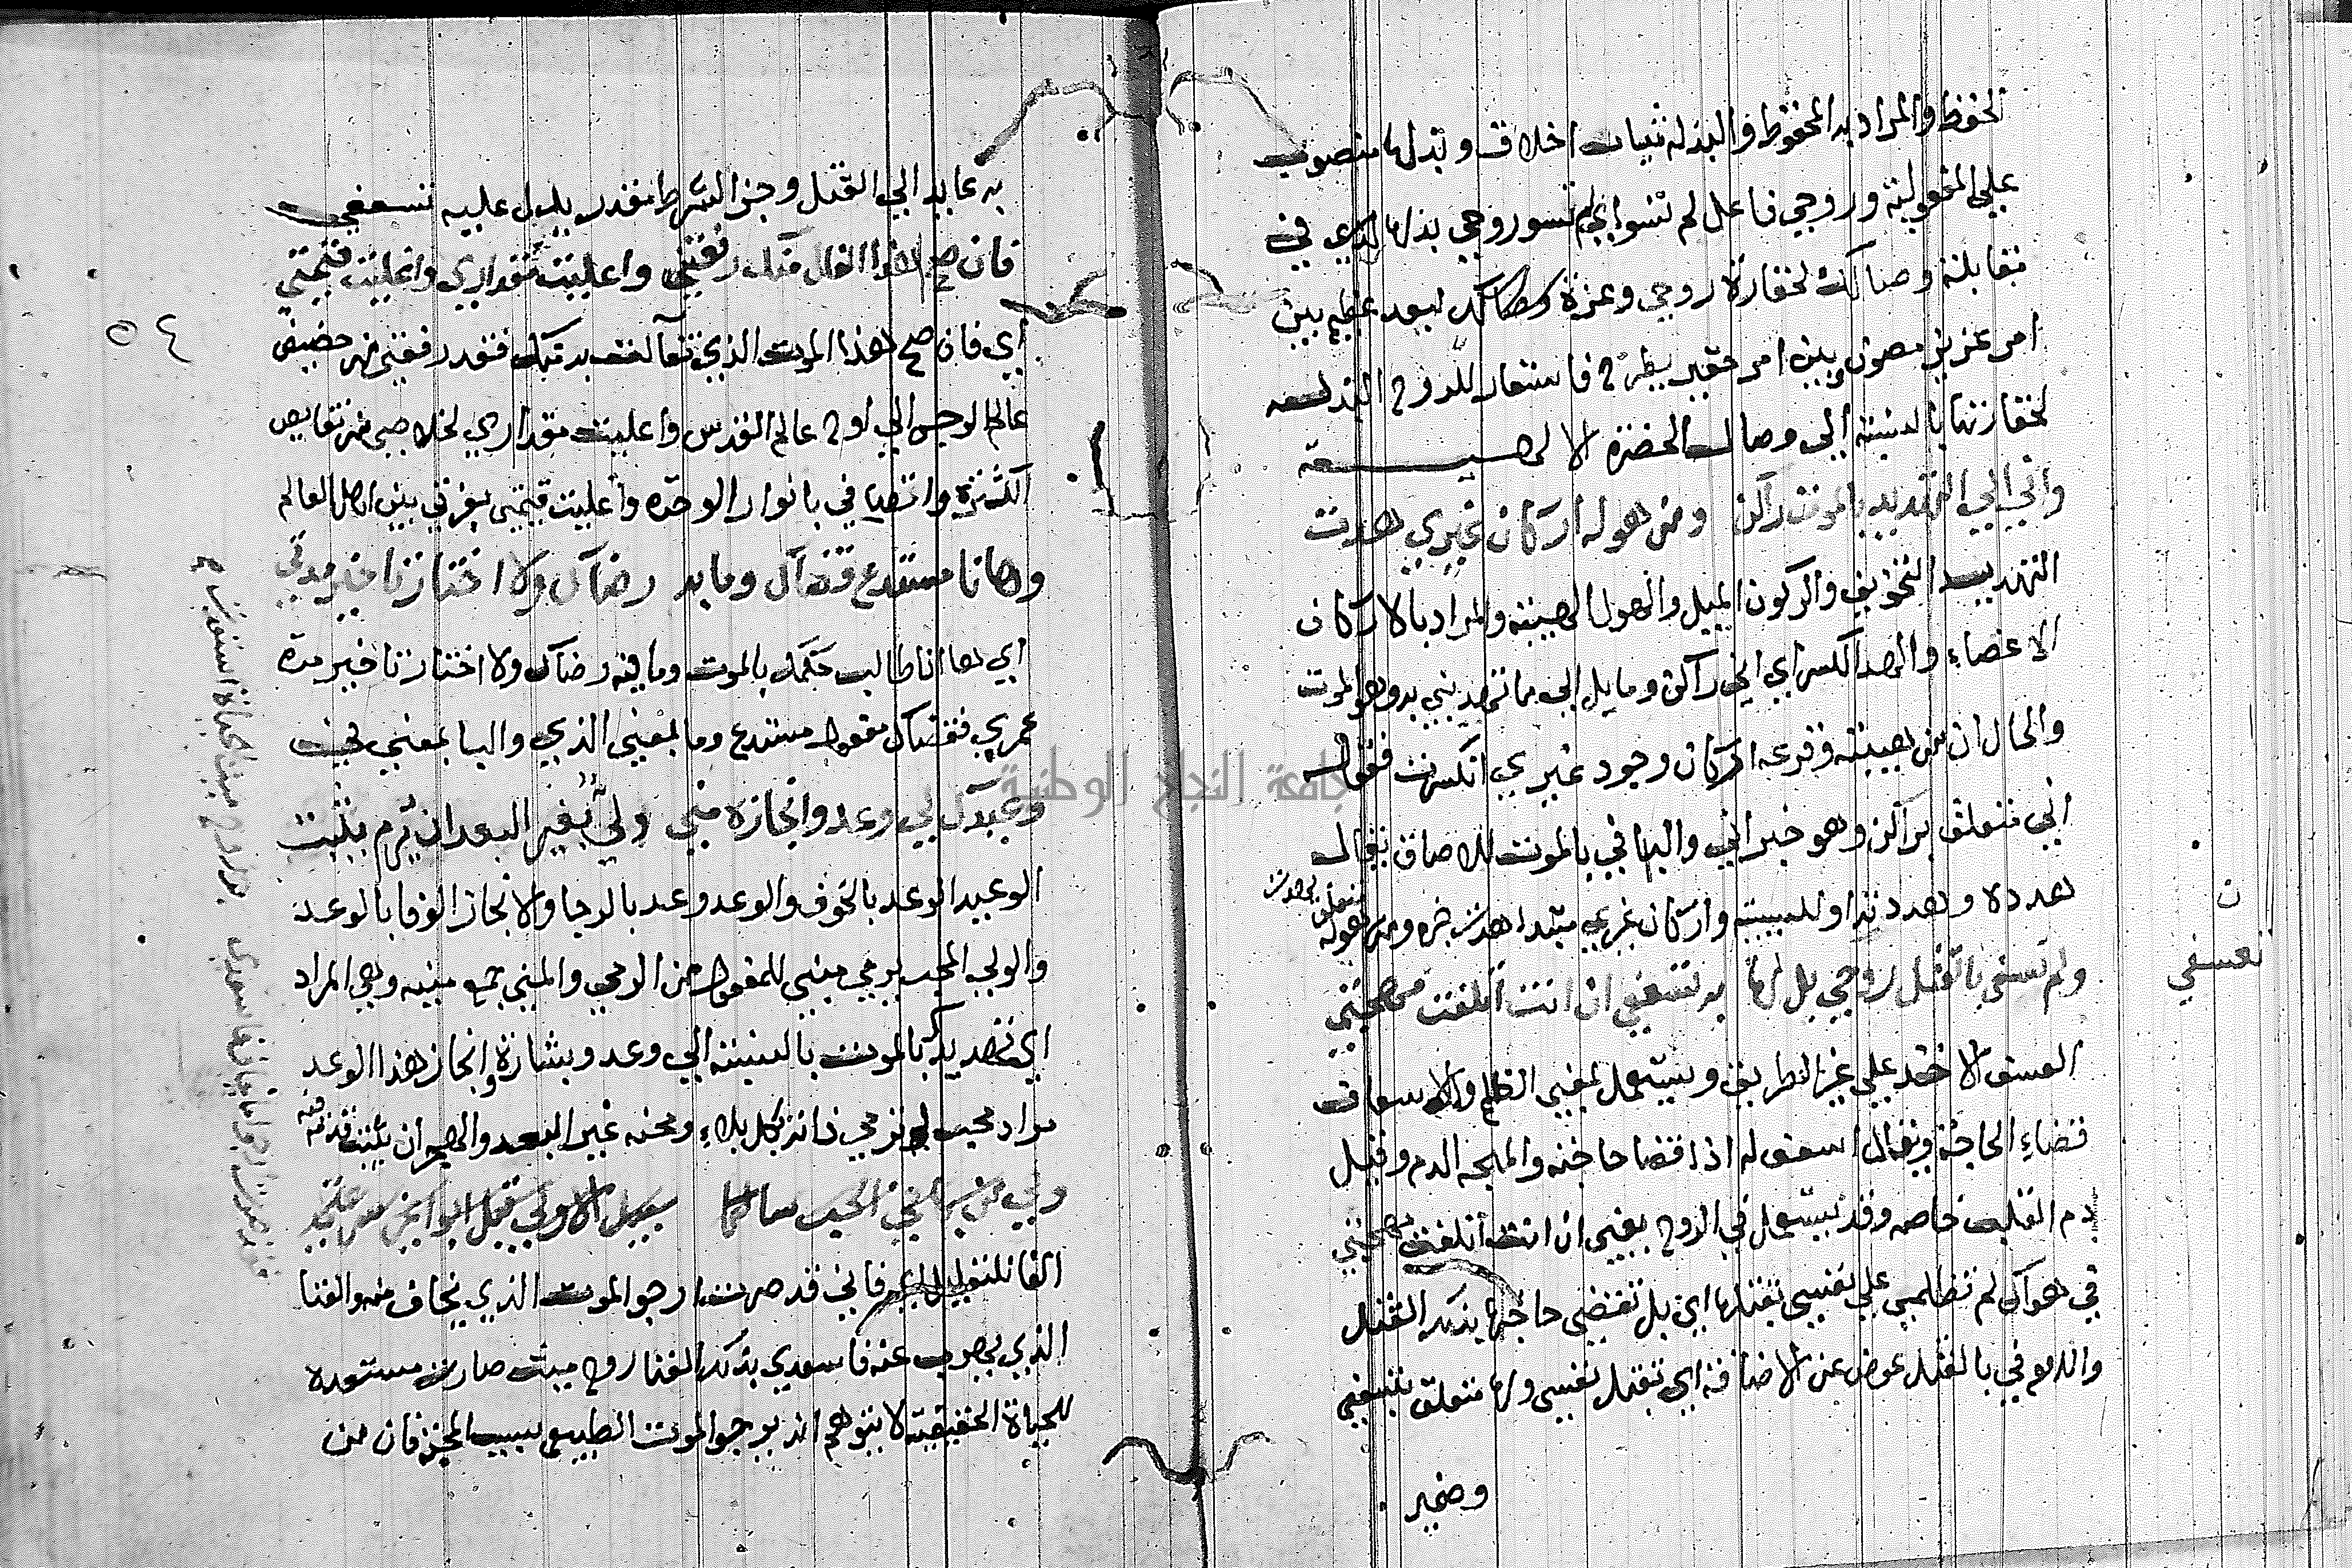 الحفظ والمراد به المحفوظ والبذله ثياب اخلاق وبذلها منصوب
علي المفعولية وروحي فاعل لم تسو اي لم تسو روحي بذلها لذي في
مقابلة وصالك لحقارة روحي وعزة وصالك لبعد عظيم بين
امر عزيز مصون وبين امر حقير يطرح فاستعار للروح البذله
لحقارتها بالنسبة الي وصال الحضرة الالهيـــة
واني الي التهديد بالموت راكن ومن هوله اركان غيري هدت
التهديد التخويف والركون الميل والهول الهيبة والمراد بالاركان
الاعضاء والهد الكسر اي اني راكن ومايل الي ما تهديني به وهو الموت
والحال ان من هيبته وفزعه اركان وجود غيري انكسرت فقوله
الي متعلق براكن وهو خبر اني والباء في بالموت للالصاق يقال
هدده وهدد به او للسببية واركان غيري مبتدا هدت خبره ومن هوله
متعلق بهدت
ولم تعسفي بالقتل روحي بل لها به تسعفي ان انت اتلفت مهجتي
ن
تعسفي
العسف الاخذ علي غير الطريق ويستعمل بمعني الظلم والاسعاف
قضاء الحاجة ويقال اسعف له اذا قضا حاجته والمهجه الدم وقيل
دم القلب خاصه وقد تستعمل في الروح يعني ان انت اتلفت مهجتي
في هواك لم تظلمي علي نفسي بقتلها اي بل تقضي حاجتها بذلك القتل
واللام في بالقتل عوض عن الاضافة اي بقتل نفسي ولها متعلق بتسعفي
وضمير
به عايد الي القتل وجزا الشرط مقدر يدل عليه تسعفي
فان صح هذا الفال منك رفعتني واعليت مقداري واغليت قيمتي
اي فان صح هذا الموت الذي تفآلت به منك فقد رفعتني من حضيض
عالم الرجس الي اوج عالم القدس واعليت مقداري لخلاصي من نقايص
الكثرة واتصافي بانوار الوحده واغليت قيمتي بعزتي بين اهل العالم
وها انا مستدع قضاك وما به رضاك ولا اختار تاخير مدتي
اي ها انا طالب حكمك بالموت وما فيه رضاك ولا اختار تاخير مدة
عمري فقضاك مفعول مستدع وما بمعني الذي والبا بمعني في
وعيدك لي وعد وانجازه مني ولي بغير البعد ان يرم يثبت
الوعيد الوعد بالخوف والوعد وعد بالرجا والانجاز الوفا بالوعد
والولي المحب يرمي مبني للمفعول من الرمي والمني جمع منيه وهي المراد
اي تهديدك بالموت بالنسبة الي وعد وبشارة وانجاز هذا الوعد
مراد محب لو ترمي ذاته بكل بلاء ومحنه غير البعد والهجران يثبت قدمه
فيه
القايلة فاني قد صرت ارجو الموت الذي يخاف منه والفنا
الذي يهرب عنه فاسعدي بذلك الفنا روح ميت صارت مستعدة
للحياة الحقيقية لا يتوهم انه يرجو الموت الطبيعي بسبب العجز فان من
٥٤